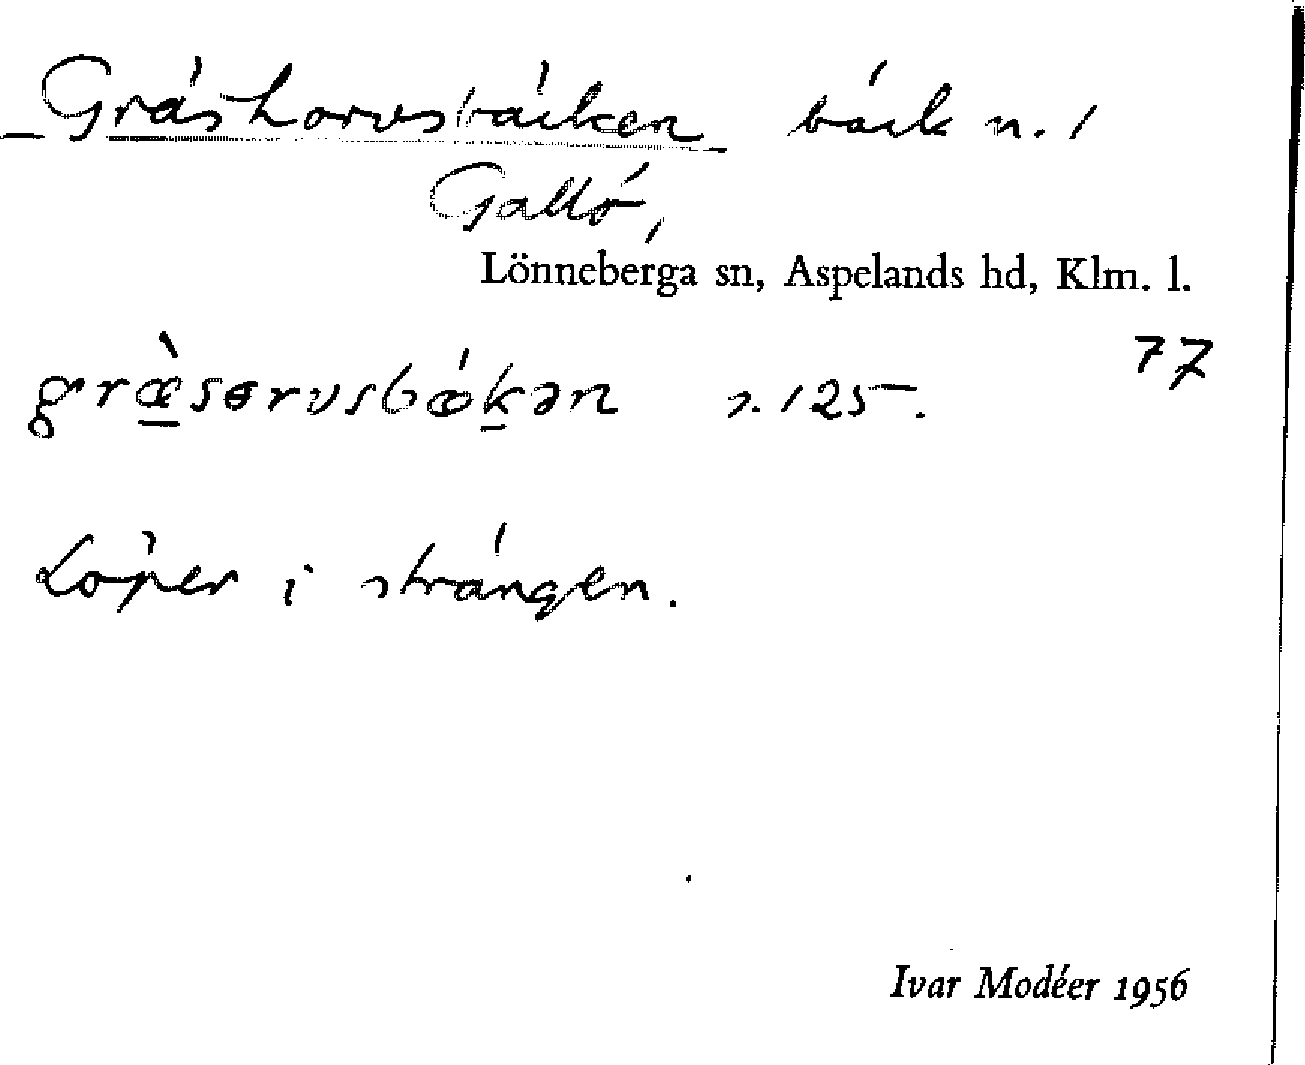 Gräshorvsbäcken bäck n. 1
Gallö,
Lönneberga sn, Aspelands hd, Klm. l.
77
græ̀sɵrvsbǽkən s. 125.
Löper i strängen.
Ivar Modéer 1956